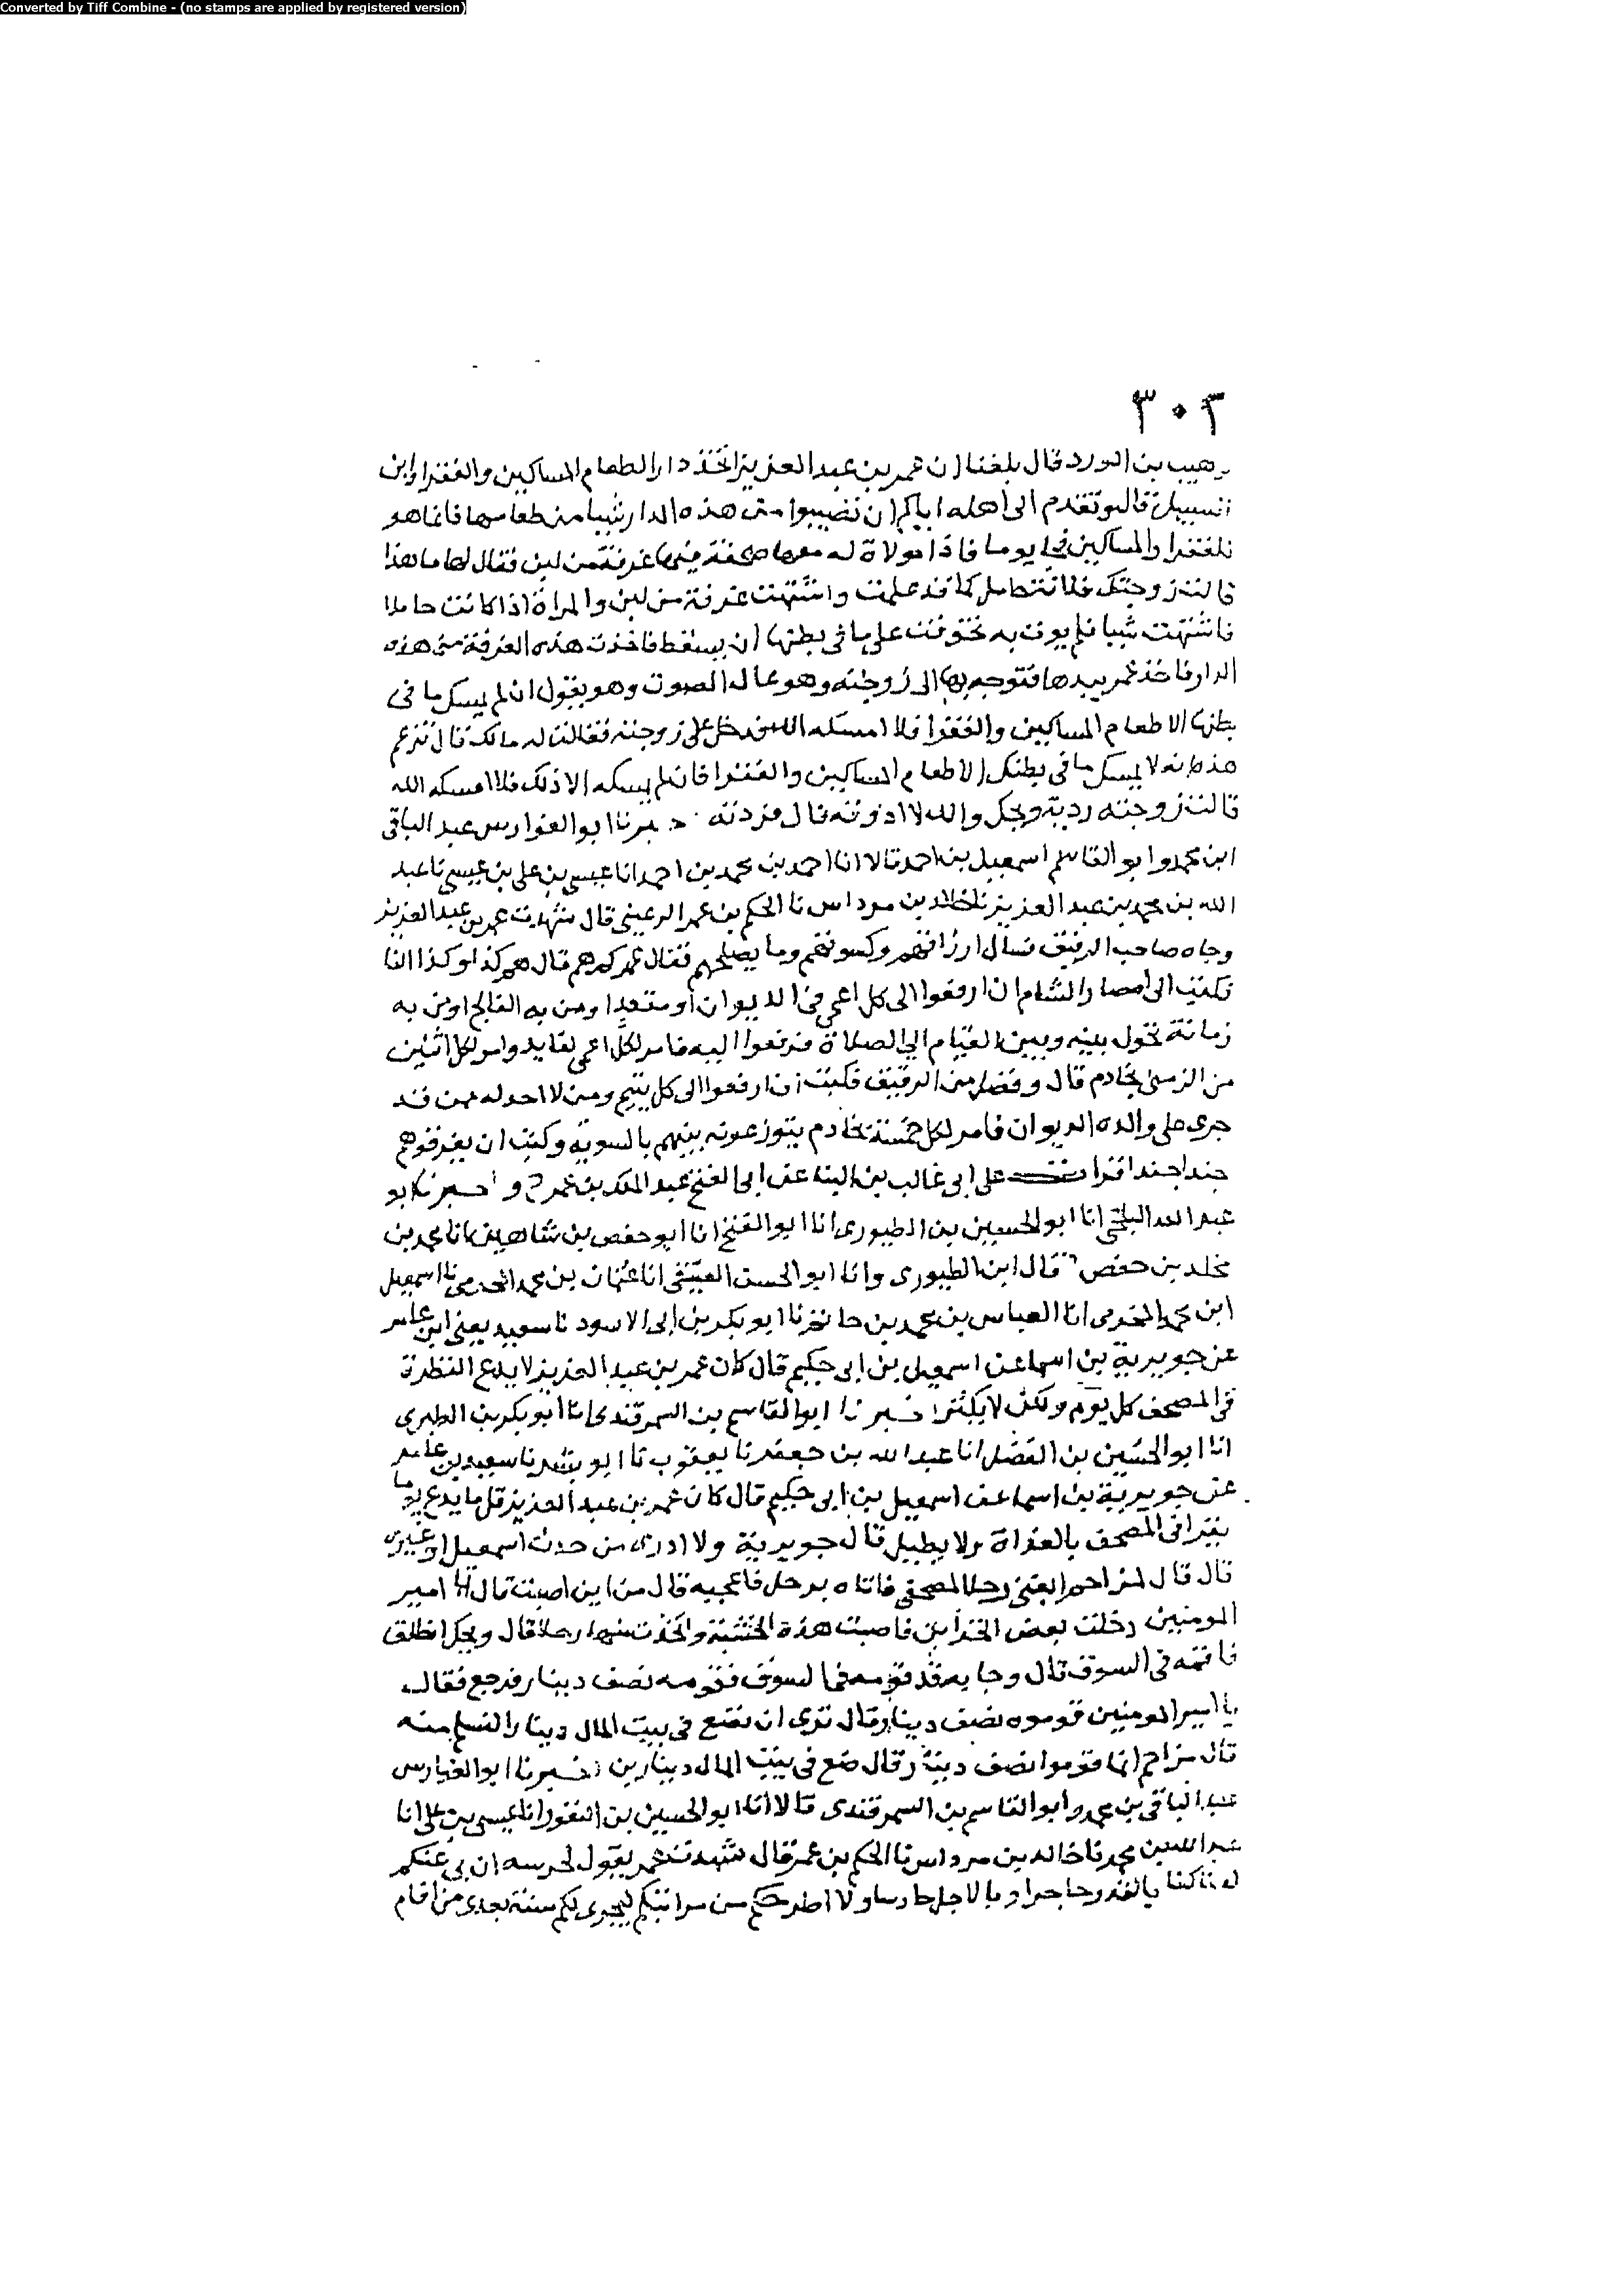 Converted by Tiff Combine - (no stamps are applied by registered version)
٣٠٣
وهيب بن الورد قال بلغنا ان عمر بن عبد العزيز اتخذ دارا لطعام المساكين والفقرا وابن
السبيل قال وتقدم الى اهله اياكم ان تصيبوا من هذه الدار شيا من طعامها فانما هو
للفقرا والمساكين فجا يوما فاذا مولاة له معها صحفة فيها غرفة من لبن فقال لها ما هذا
قالت زوجتك فلانة حامل كما قد علمت واشتهت غرفة من لبن والمراة اذا كانت حاملا
فاشتهت شيا فلم يوت به تخوفت على ما في بطنها ان يسقط فاخذت هذه الغرفة من هذه
الدار فاخذ عمر بيدها فتوجه بها الى زوجته وهو عالى الصوت وهو يقول ان لم يمسك ما في
بطنها الا طعام المساكين والفقرا فلا امسكه الله فدخل على زوجته فقالت له مالك قال تزعم
هذه انه لا يمسك ما في بطنك الا طعام المساكين والفقرا فان لم يمسكه الا ذلك فلا امسكه الله
قالت زوجته رديه ويحك والله لا اذوقه قال فردته خبرنا ابو الفوارس عبد الباقي
ابن محمد وابو القاسم اسمعيل بن احمد قالا انا احمد بن محمد بن احمد انا عيسى بن على بن عيسى نا عبد
الله بن محمد بن عبد العزيز نا خالد بن مرداس نا الحكم بن عمر الرعيني قال شهدت عمر بن عبد العزيز
وجاه صاحب الرقيق فسال ارزاقهم وكسوتهم وما يصلحهم فقال عمر كم هم قال هم كذا وكذا الفا
فكتب الى امصار الشام ان ارفعوا الى كل اعمى في الديوان او مقعد او من به الفالج او من به
زمانة تحول بينه وبين القيام الى الصلاة فرفعوا اليه فامر لكل اعمى بقايد وامر لكل اثنين
من الزمنى بخادم قال وفضل من الرقيق فكتب ان ارفعوا الى كل يتيم ومن لا احد له ممن قد
جرى على والده الديوان فامر لكل خمسة بخادم يتوزعونه بينهم بالسوية وكتب ان يفرقوهم
جندا جندا قرات على ابى غالب بن البنا عن ابى الفتح عبد الملك بن عمر ح و اخبرنا ابو
عبد الله البلخى انا ابو الحسين بن الطيورى انا ابو الفتح انا ابو حفص بن شاهين نا محمد بن
مخلد بن حفص قال ابن الطيورى وانا ابو الحسن العتيقي انا عثمان بن محمد المخرمى نا اسمعيل
ابن محمد المخرمى انا العباس بن محمد بن حاتم نا ابو بكر بن ابى الاسود نا سعيد يعنى ابن عامر
عن جويرية بن اسما عن اسمعيل بن ابى حكيم قال كان عمر بن عبد العزيز لا يدع النظرة
في المصحف كل يوم ولكن لا يكثر اخبرنا ابو القاسم بن السمرقندى انا ابو بكر بن الطبرى
انا ابو الحسين بن الفضل انا عبد الله بن جعفر نا يعقوب نا ابو بشر نا سعيد بن عامر
عن جويرية بن اسما عن اسمعيل بن ابى حكيم قال كان عمر بن عبد العزيز قل ما يدع يوما
يقرا في المصحف بالغداة ولا يطيل قال جويرية ولا ادرى من حدث اسمعيل او غيره
قال قال لمزاحم ابغنى رحلا لمصحفى فاتاه برحل فاعجبه قال من اين اصبت قال يا امير
المومنين دخلت بعض الخزاين فاصبت هذه الخشبة واتخذت منها رحلا قال ويحك انطلق
فاقمه في السوق قال وجا به فقد قومه في السوق فقومه نصف دينار فرجع فقال
يا امير المومنين قوموه نصف دينار قال ترى ان نضع في بيت المال دينارا لنسلم منه
قال مزاحم انما قوموا نصف دينار قال ضع في بيت المال دينارين اخبرنا ابو الفوارس
عبد الباقي بن محمد وابو القاسم بن السمرقندى قالا انا ابو الحسين بن النقور انا عيسى بن على انا
عبد الله بن محمد نا خالد بن مرداس نا الحكم بن عمر قال شهدت عمر يقول لحرسه ان بى عنكم
لغنا كفا بالقدر حاجزا وبالاجل حارسا ولا اطرحكم من مراتبكم ليجرى لكم سنة بعدى من اقام